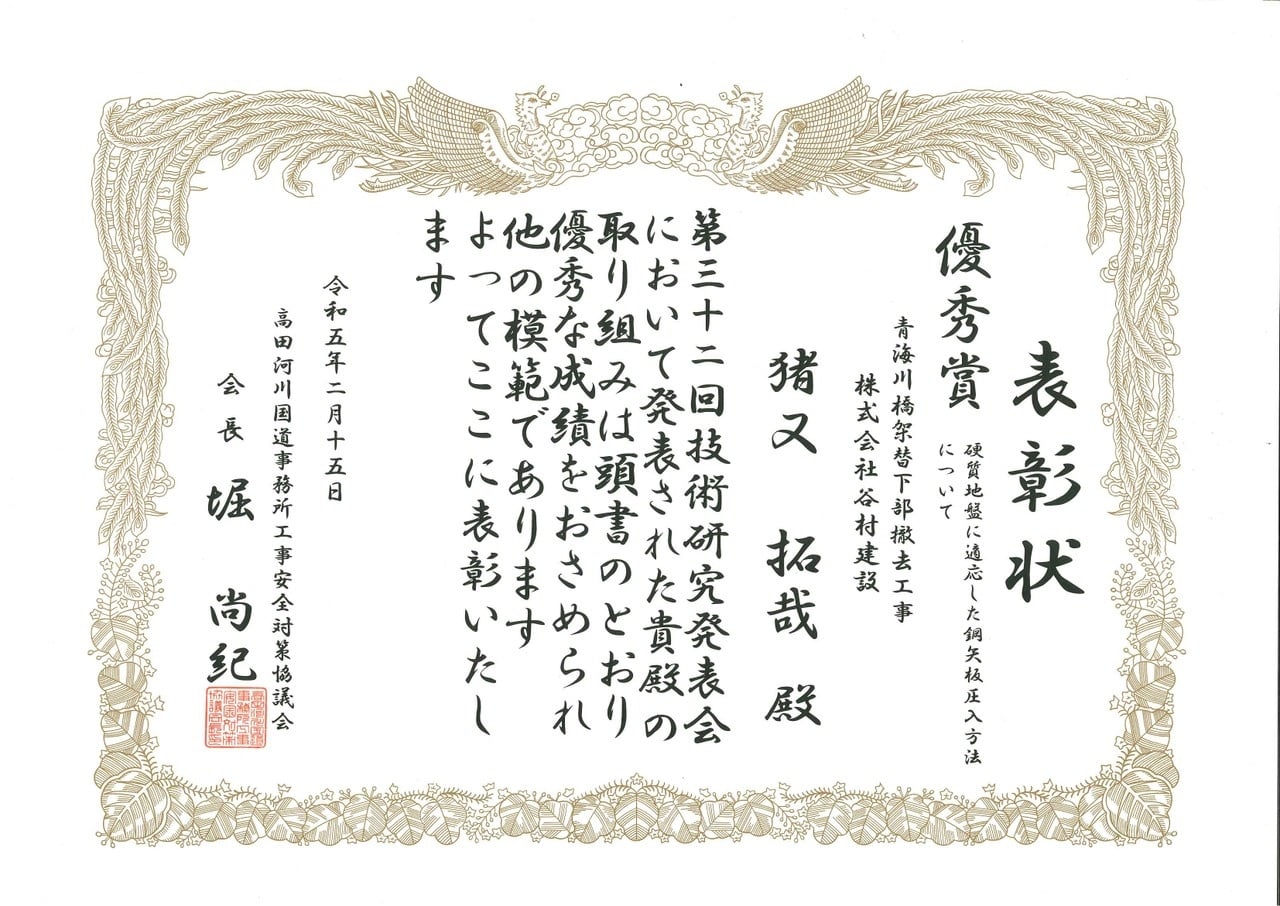 表彰状
優秀賞
硬質地盤に適応した鋼矢板圧入方法
について
青海川橋架替下部撤去工事
株式会社谷村建設
猪又 拓哉 殿
第三十二回技術研究発表会
において発表された貴殿の
取り組みは頭書のとおり
優秀な成績をおさめられ
他の模範であります
よってここに表彰いたし
ます
令和五年二月十五日
高田河川国道事務所工事安全対策協議会
会長 堀 尚紀